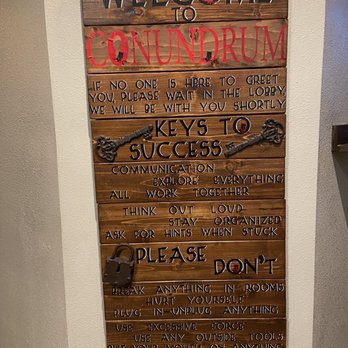 WELCOME
TO
CONUNDRUM
IF NO ONE IS HERE TO GREET
YOU, PLEASE WAIT IN THE LOBBY
WE WILL BE WITH YOU SHORTLY
KEYS TO
SUCCESS
COMMUNICATION
EXPLORE EVERYTHING
ALL WORK TOGETHER
THINK OUT LOUD
STAY ORGANIZED
ASK FOR HINTS WHEN STUCK
PLEASE
DON'T
BREAK ANYTHING IN ROOMS
HURT YOURSELF
PLUG IN UNPLUG ANYTHING
USE EXCESSIVE FORCE
USE ANY OUTSIDE TOOLS